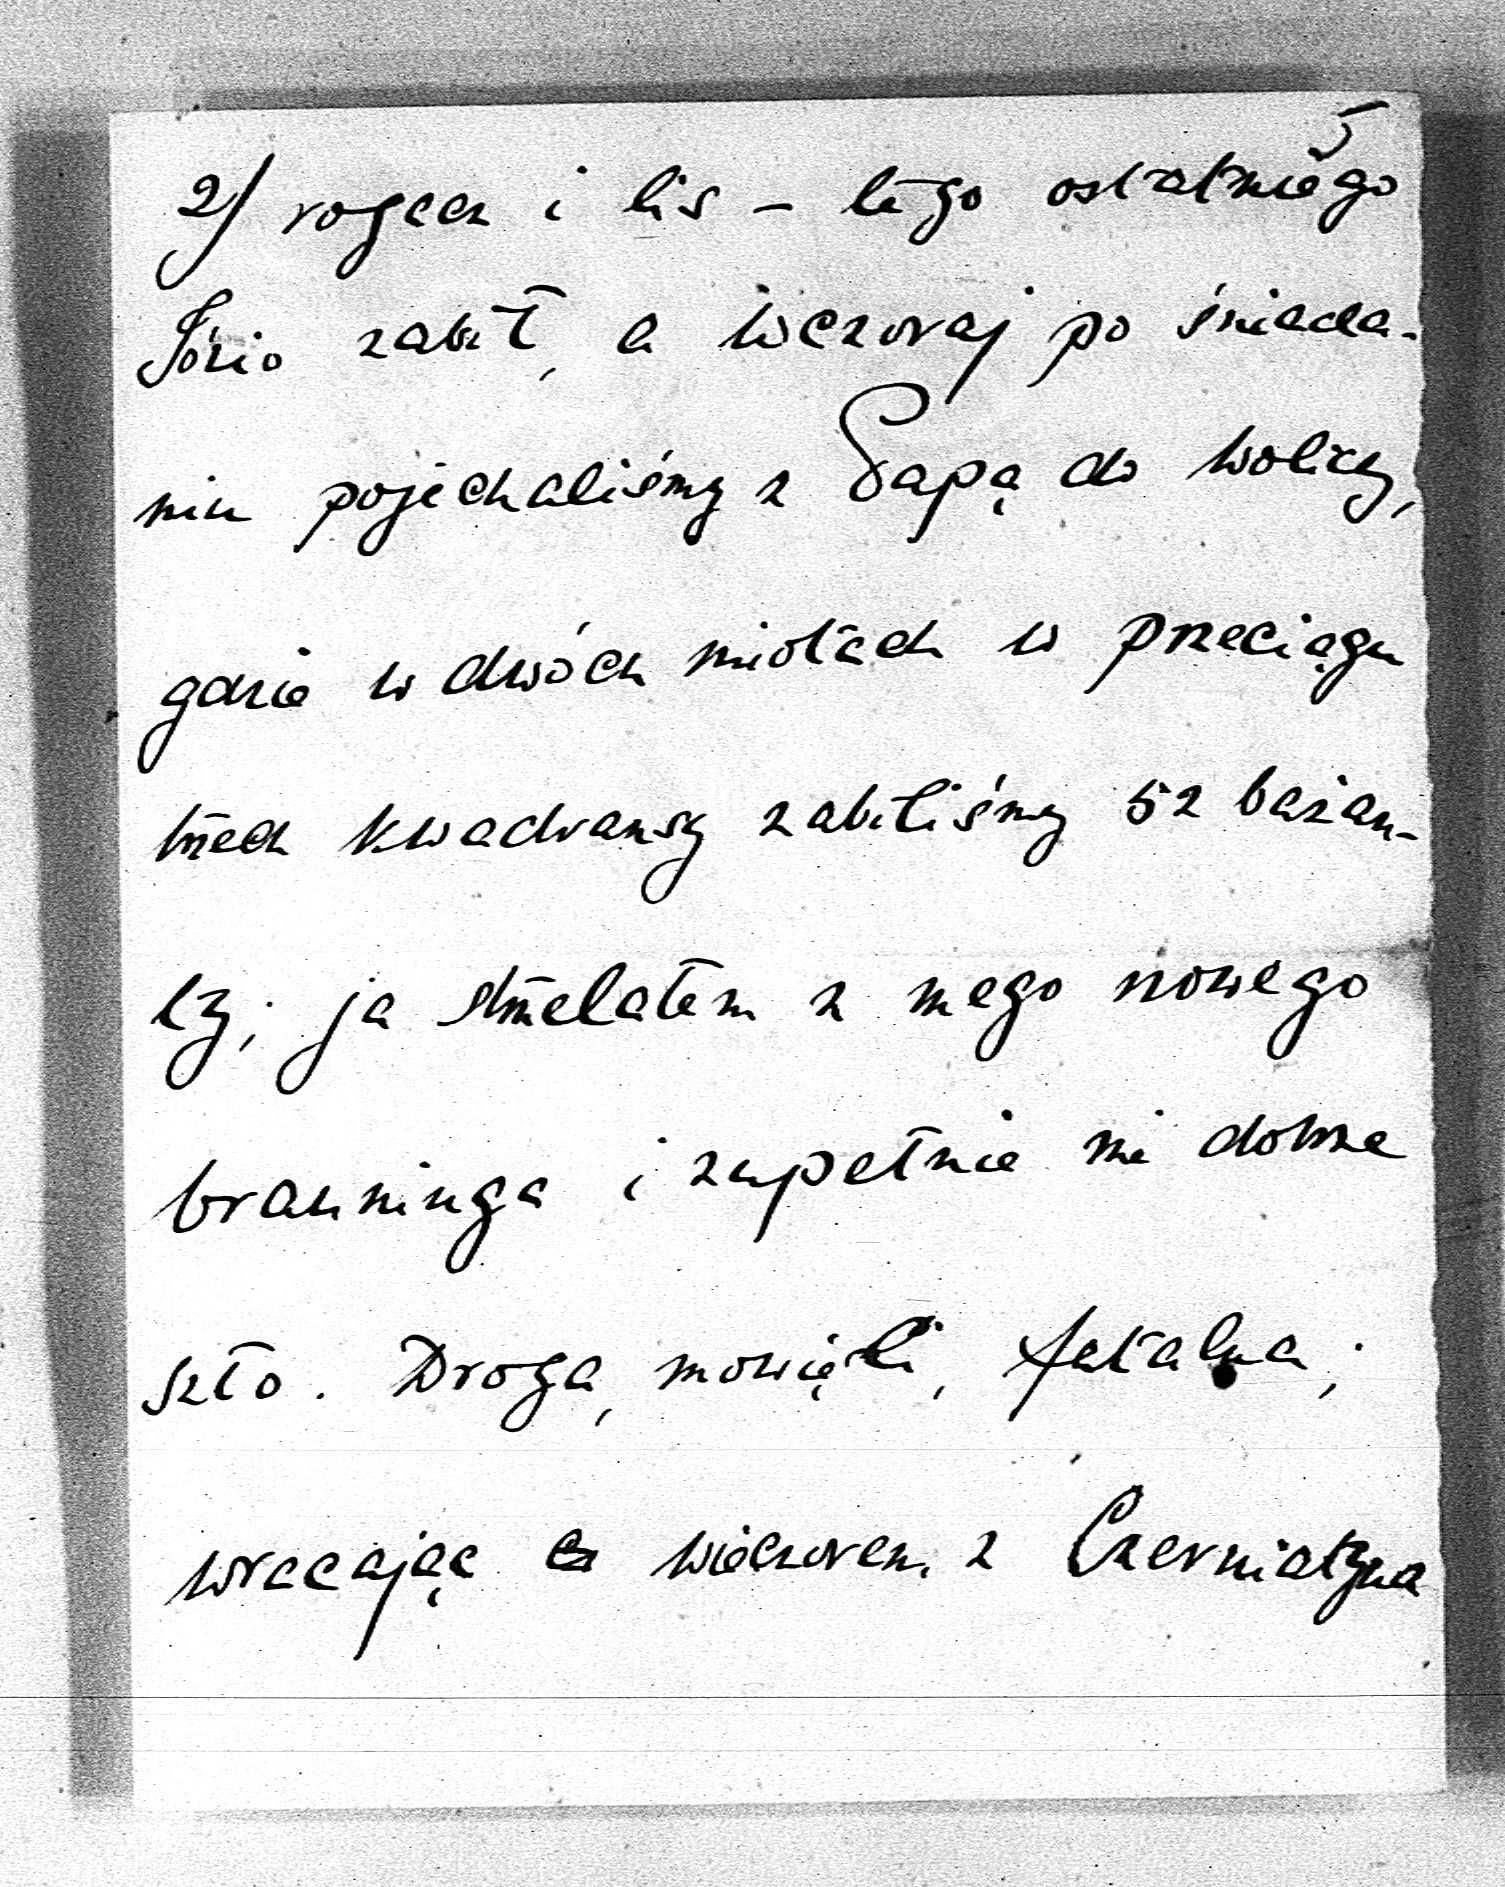 5
2/ rogacz i lis – tego ostatniego
Józio zabił, a wczoraj po śniada-
niu pojechaliśmy z Papą do Wolicy,
gdzie w dwóch miotach w przeciągu
trzech kwadransy zabiliśmy 52 bażan-
ty; ja strzelałem z mego nowego
brauninga i zupełnie mi dobrze
szło. Droga, mowięli, fatalna;
wracając wieczorem z Czerniatyna